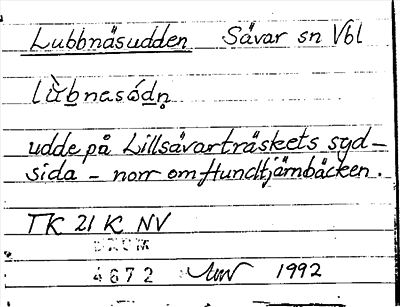 Lubbnäsudden Sävar sn Vbl
lù̀bnesó̱dṇ
udde på Lillsävarträskets syd-
sida - norr om Hundtjärnbäcken.
TK 21 K NV
4672 1992